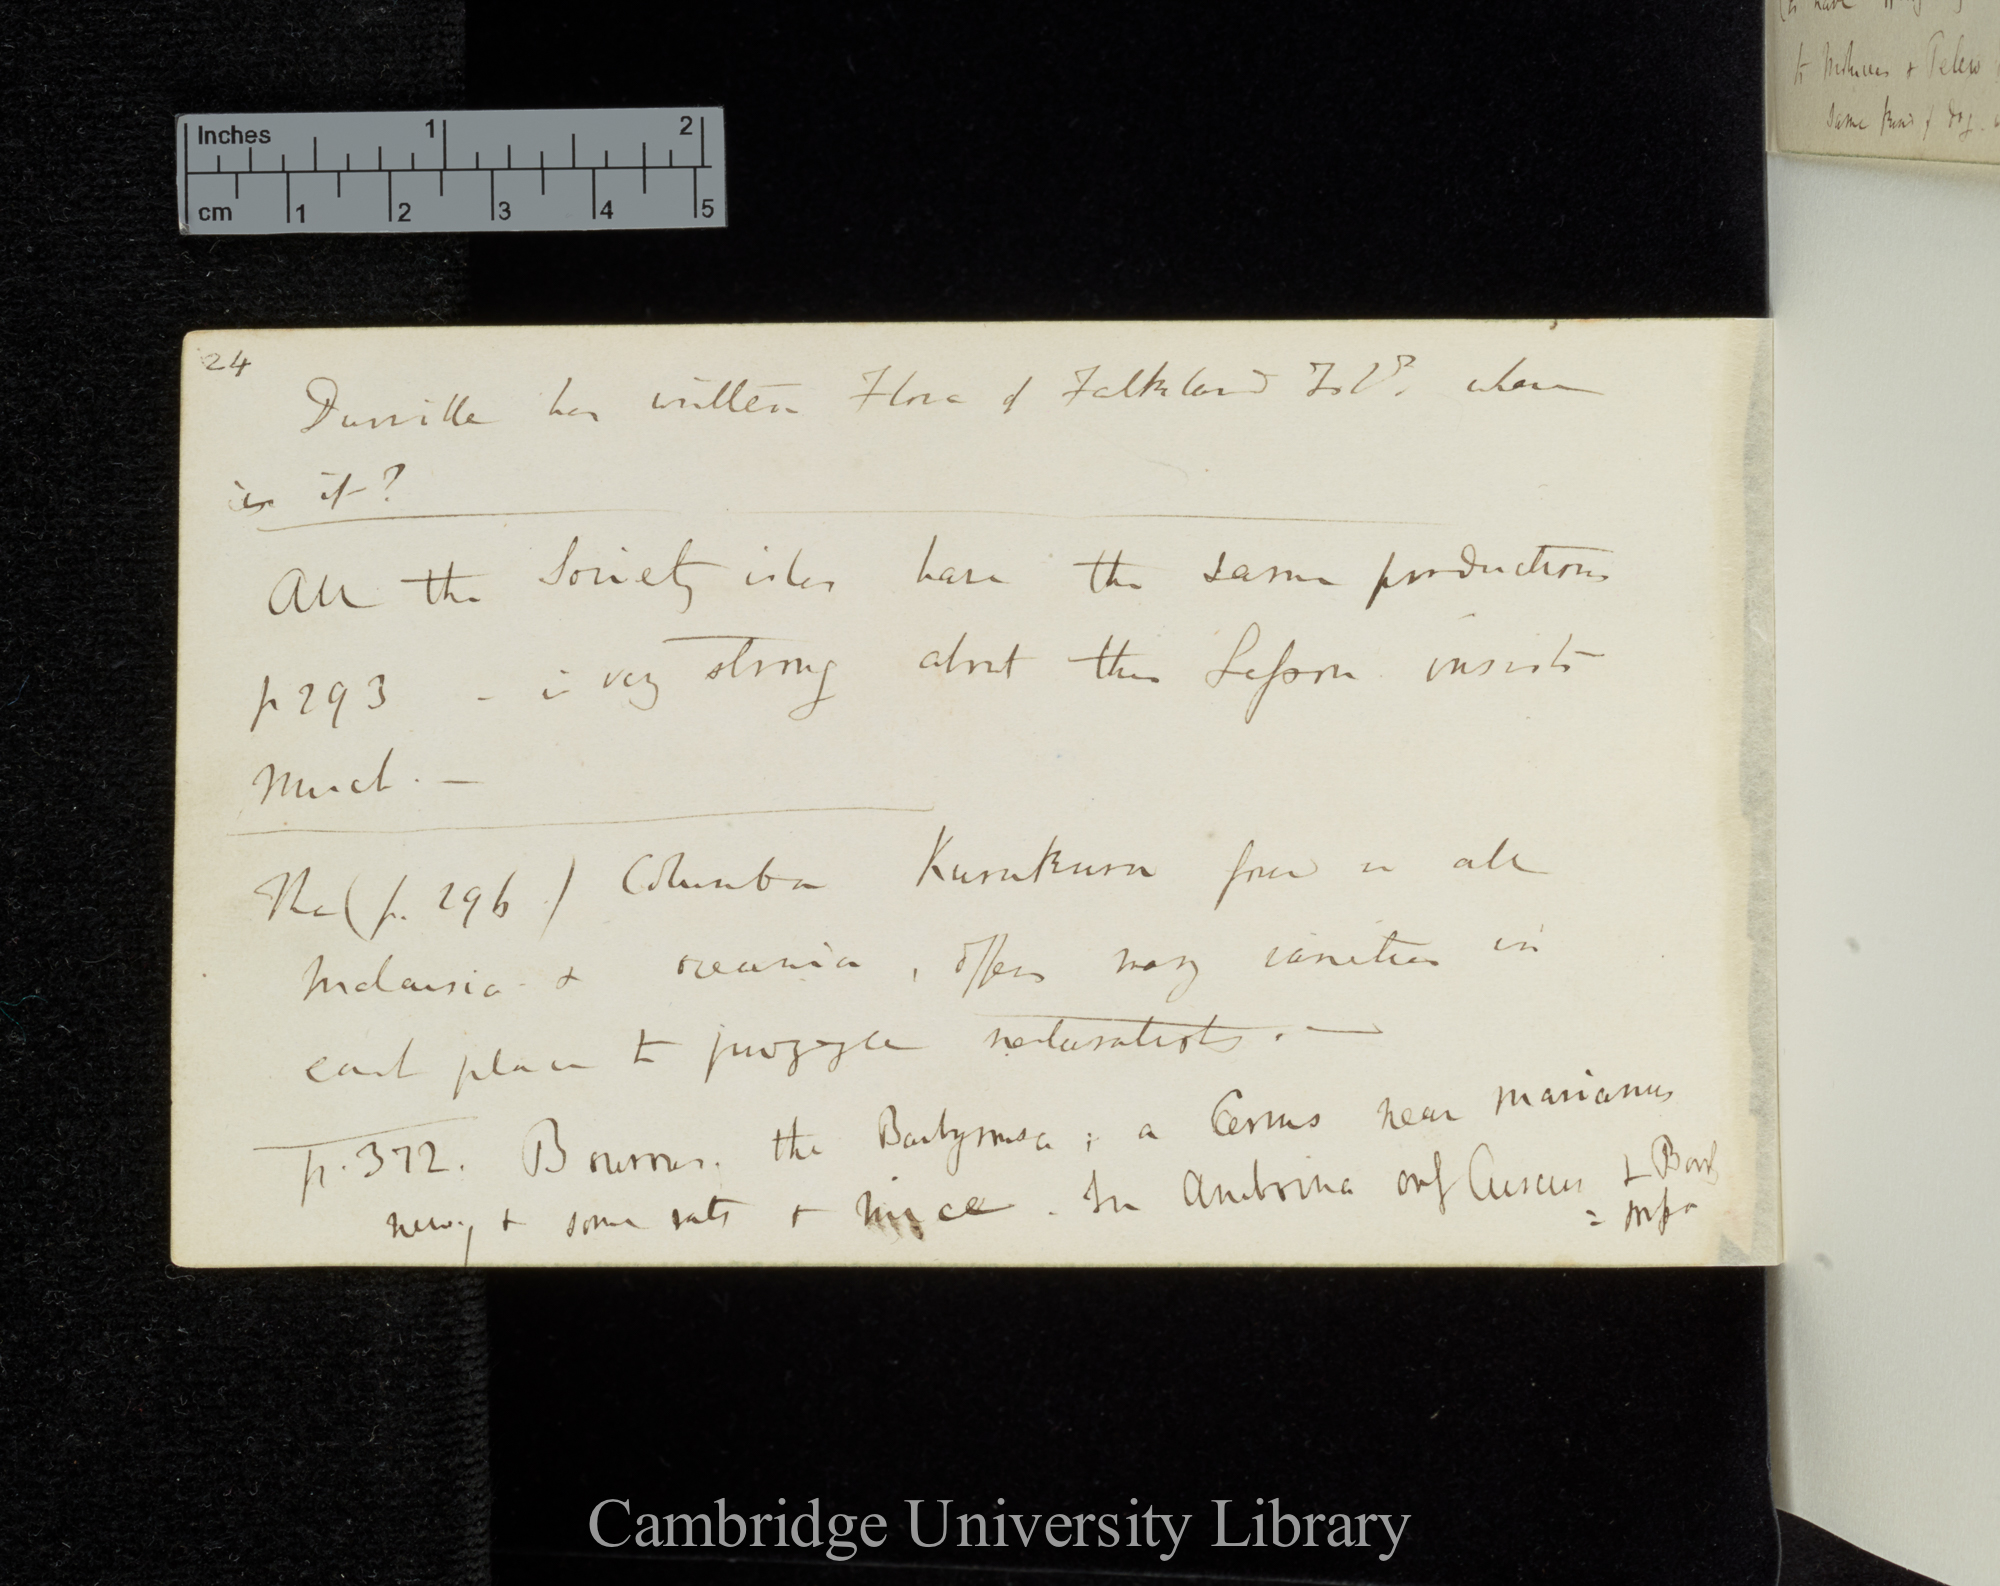 Inches 1 2
cm 1 2 3 4 5
to Moluccas & Pelew
same kind of dog.
24
Durville has written Flora of Falkland Isld. where
is it?
All the Society isles have the same productions
p 293 - is very strong about this Lesson insists
much. —
The (p. 296) Columba Kurukuru found in all
Malaisia & oceania, offers many varieties in
each place to puzzle naturalists. —
p. 372. Bouron. the Barbyrousa; a Cervus near marianus
new; & some rats & mice. In Amboina only Cuscus & Barb
Cambridge University Library